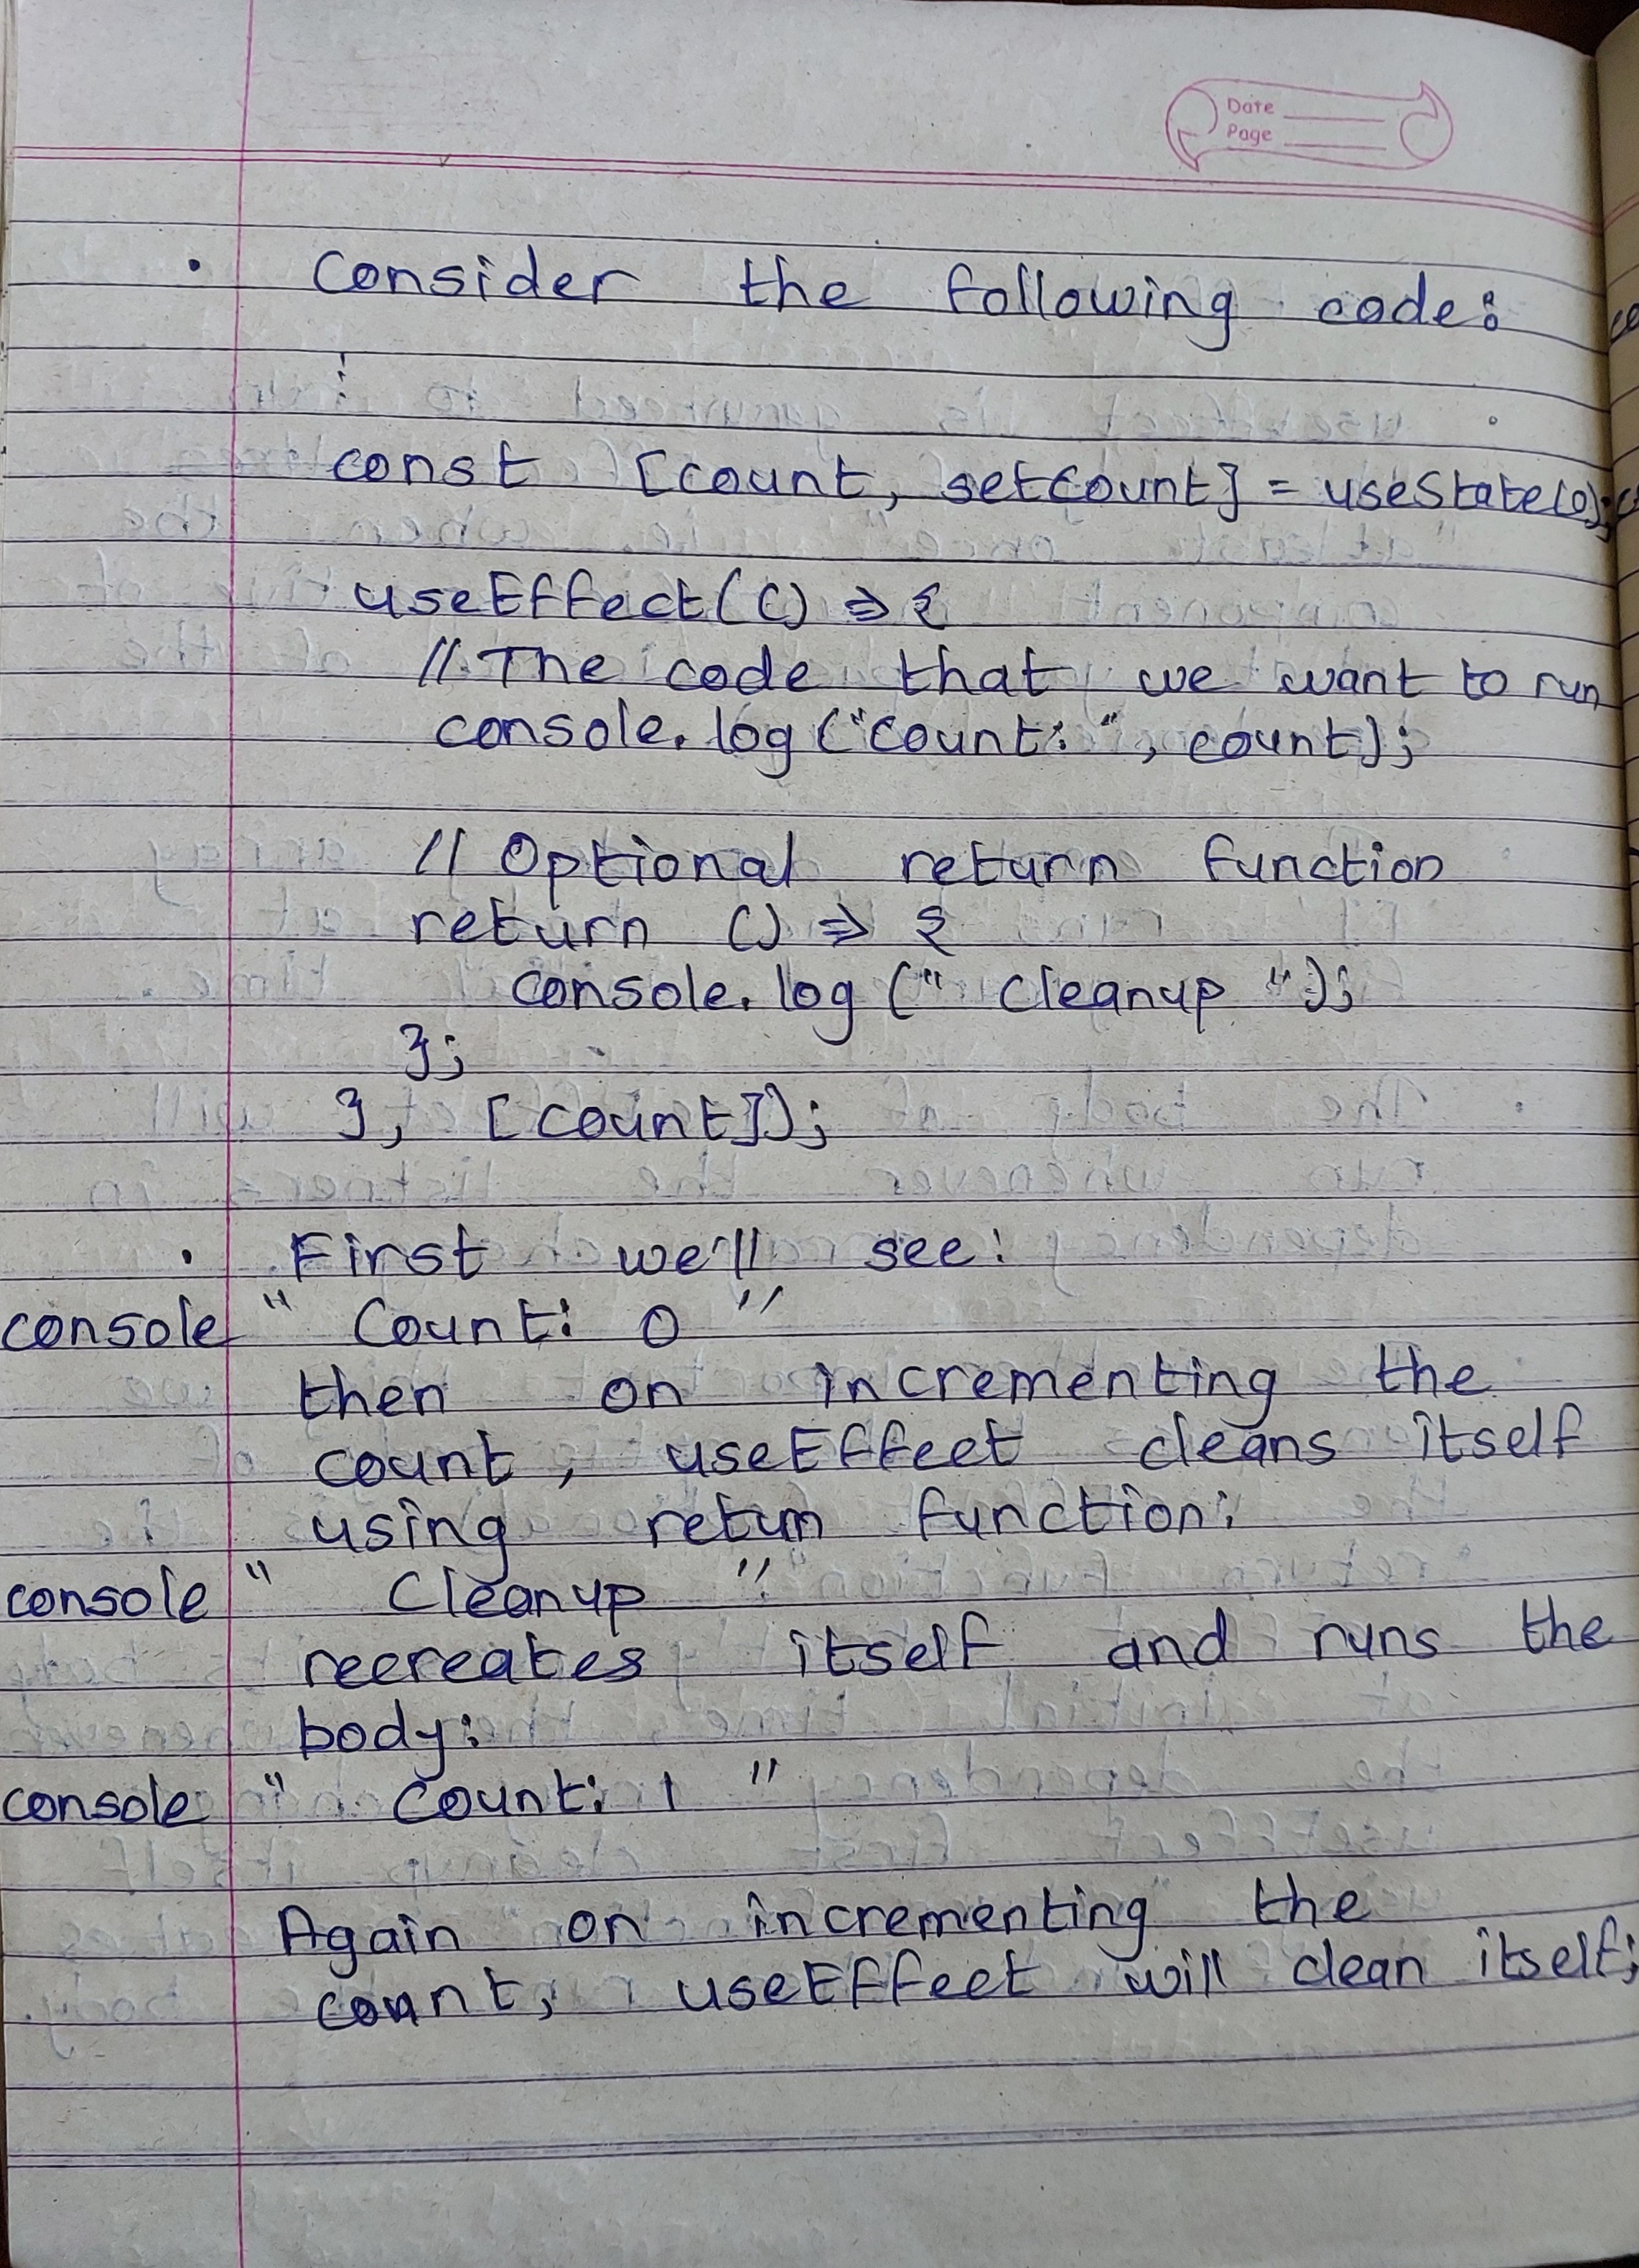 Date
Page
• Consider the following code:
⋮
const [count, setCount] = useState(0);
useEffect(() => {
// The code that we want to run
console.log("Count: ", count);
// Optional return function
return () => {
console.log(" Cleanup ");
};
}, [count]);
• First we'll see:
console " Count: 0 "
then on incrementing the
count, useEffect cleans itself
using return function:
console " Cleanup "
recreates itself and runs the
body:
console " Count: 1 "
Again on incrementing the
count, useEffect will clean itself;